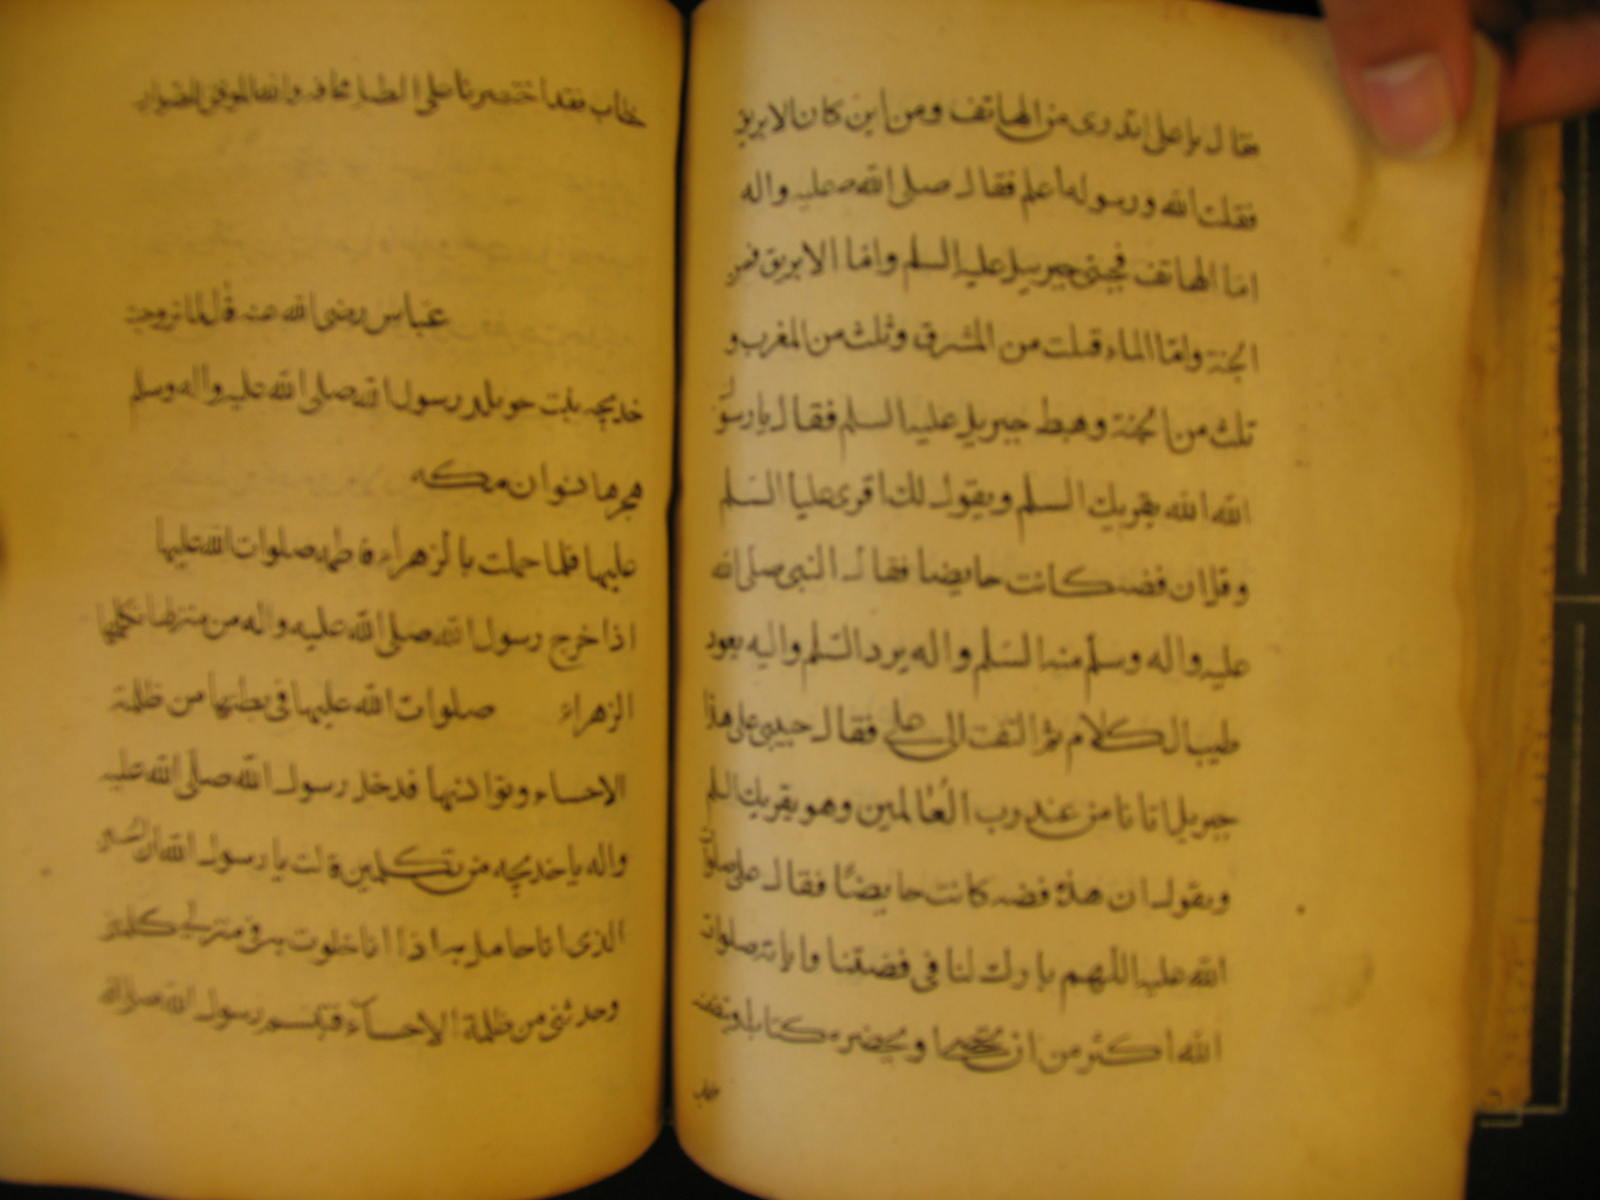 فقال يا على اتدرى من الهاتف ومن اين كان الابريق
فقلت الله ورسوله اعلم فقال صلى الله عليه واله
اما الهاتف فحبيبى جبريل عليه السلم واما الابريق فمن
الجنة واما الماء فثلث من المشرق وثلث من المغرب و
ثلث من الجنة وهبط جبريل عليه السلم فقال يا رسول
الله الله يقريك السلم ويقول لك اقرى عليا السلم
وقل ان فضه كانت حايضا فقال النبى صلى الله
عليه واله وسلم منه السلم واله يرد السلم واليه يعود
طيب الكلام ثم التفت الى على فقال حبيبى على هذا
جبريل اتانا من عند رب العالمين وهو يقريك السلم
ويقول ان هذه فضه كانت حايضا فقال على صلوات
الله عليه اللهم بارك لنا فى فضتنا واياته صلوات
الله اكثر من ان
فقد اختصرنا على والله الموفق للصواب
عباس رضى الله عنه قال لما تزوجت
خديجه بنت خويلد رسول الله صلى الله عليه واله وسلم
هجرها نسوان مكه
عليها فلما حملت بالزهراء فاطمه صلوات الله عليها
اذا خرج رسول الله صلى الله عليه واله من منزلها تكلمها
الزهراء صلوات الله عليها فى بطنها من ظلمة
الاحساء وتوانسها فدخل رسول الله صلى الله عليه
واله يا خديجه من تكلمين قالت يا رسول الله ان
الذى انا حامل به اذا انا خلوت به فى منزلى كلمنى
وحدثنى من ظلمة الاحساء فتبسم رسول الله صلى الله